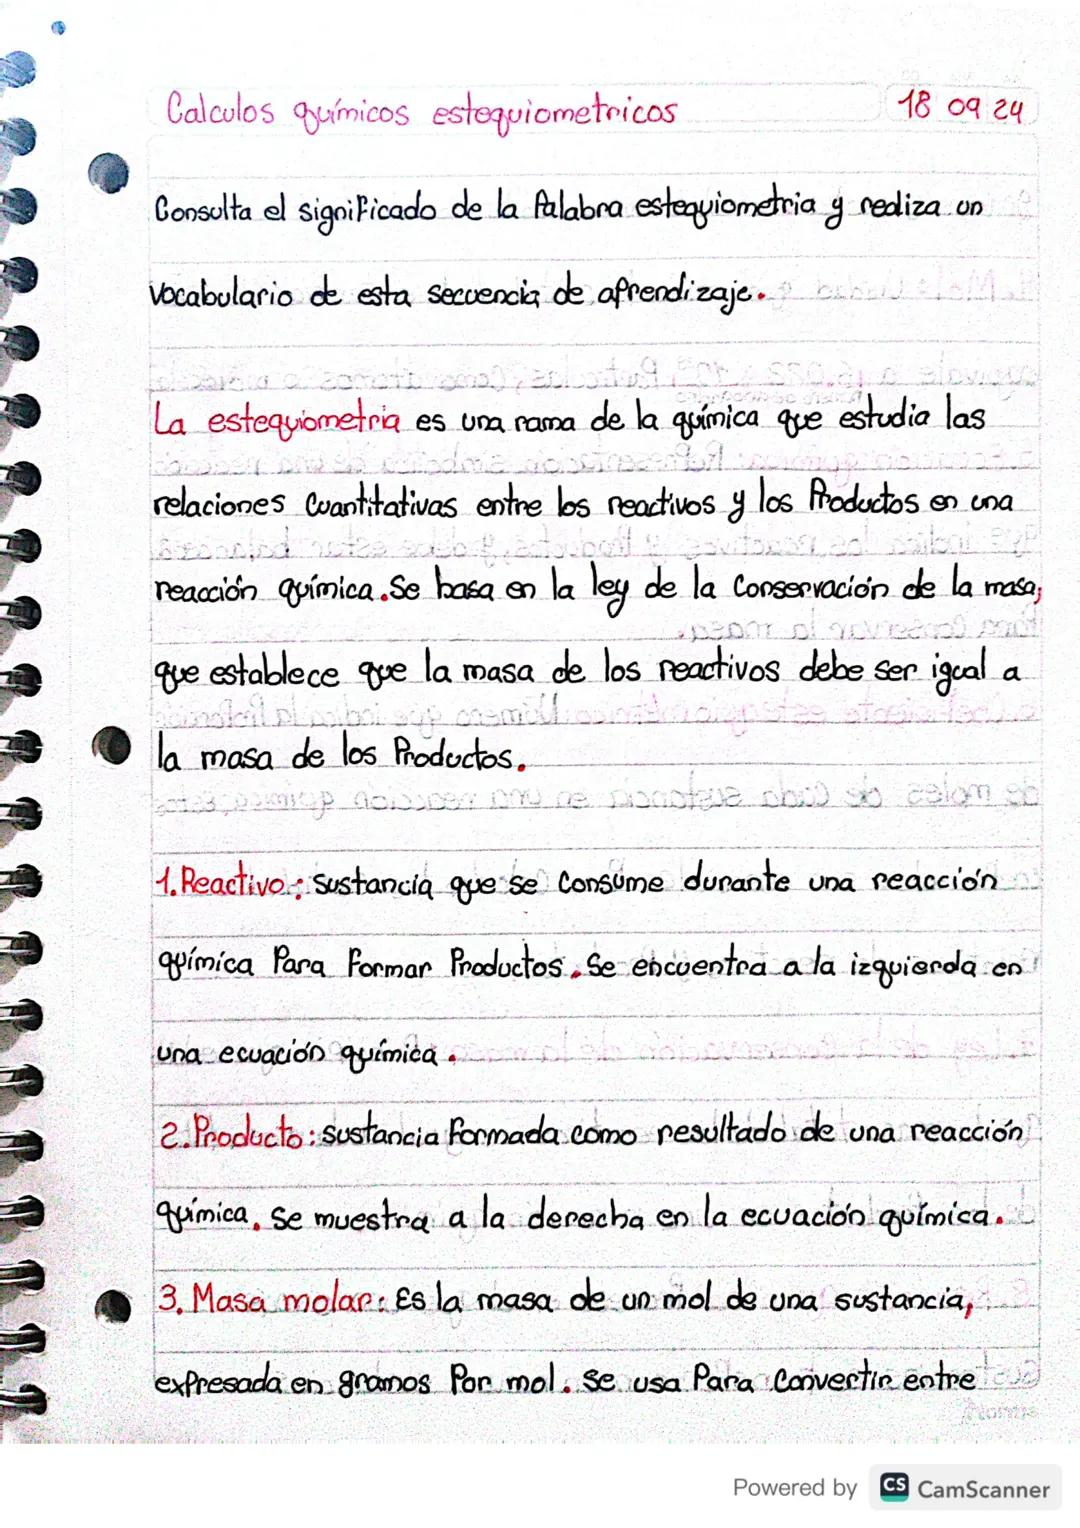 Calculos químicos estequiometricos
18 09 24
Consulta el significado de la Palabra estequiometria y rediza un
vocabulario de esta secuencia de aprendizaje.
La estequiometria es una rama de la química que estudia las
relaciones Cuantitativas entre los reactivos y los Productos en una
reacción química. Se basa en la ley de la Conservación de la masa,
que establece que la masa de los reactivos debe ser igual a
la masa de los Productos.
1. Reactivo: Sustancia que se Consume durante una reacción
química Para Formar Productos. Se encuentra a la izquierda en
una ecuación química.
2. Producto: sustancia Formada como resultado de una reacción
química. Se muestra a la derecha en la ecuación química.
3. Masa molar: Es la masa de un mol de una sustancia,
expresada en gramos Por mol. Se usa Para Convertir entre
Powered by CS CamScanner